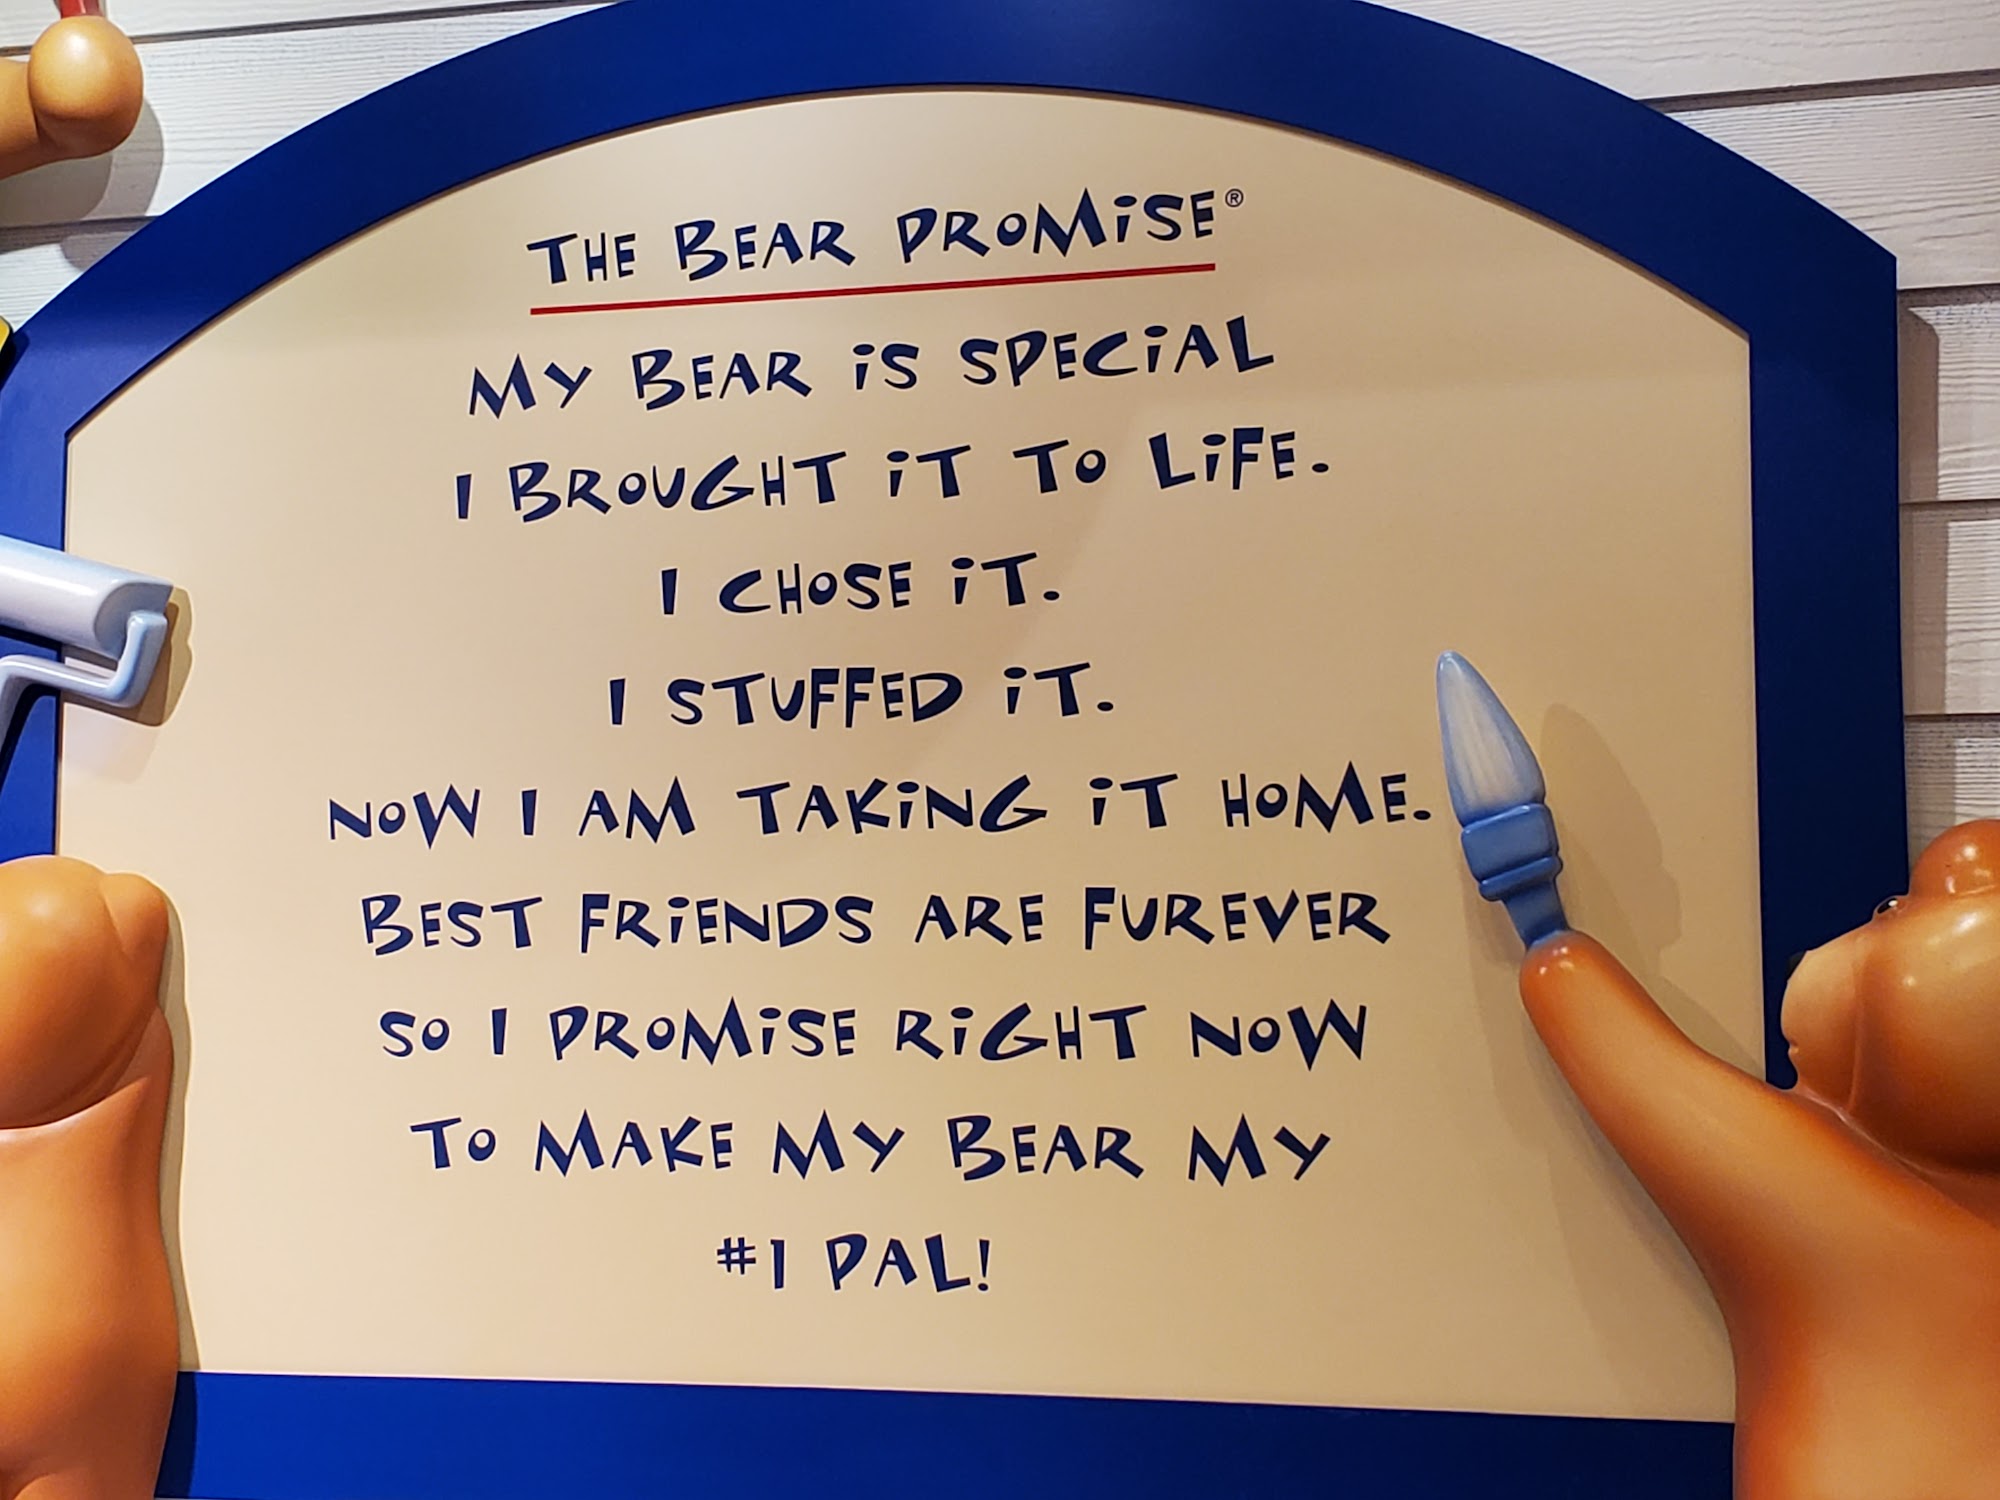 THE BEAR PROMiSE®
MY BEAR iS SPECiAL
I BROUGHT iT TO LiFE.
I CHOSE iT.
I STUFFED iT.
NOW I AM TAKiNG iT HOME.
BEST FRiENDS ARE FUREVER
SO I PROMiSE RiGHT NOW
TO MAKE MY BEAR MY
#1 PAL!